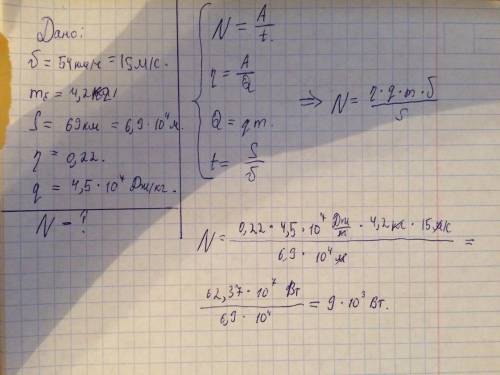 Дано:
υ = 54 км/ч = 15 м/с.
mδ = 4,2 кг
S = 69 км = 6,9 · 10⁴ м.
η = 0,22.
q = 4,5 · 10⁴ Дж/кг.
N - ?
N = A/t.
η = A/Q
Q = qm.
t = S/υ
=> N = η · q · m · υ / S
N = 0,22 · 4,5 · 10⁷ Дж/т · 4,2 кг · 15 м/с / 6,9 · 10⁴ м =
62,37 · 10⁷ Вт / 6,9 · 10⁴ = 9 · 10³ Вт.